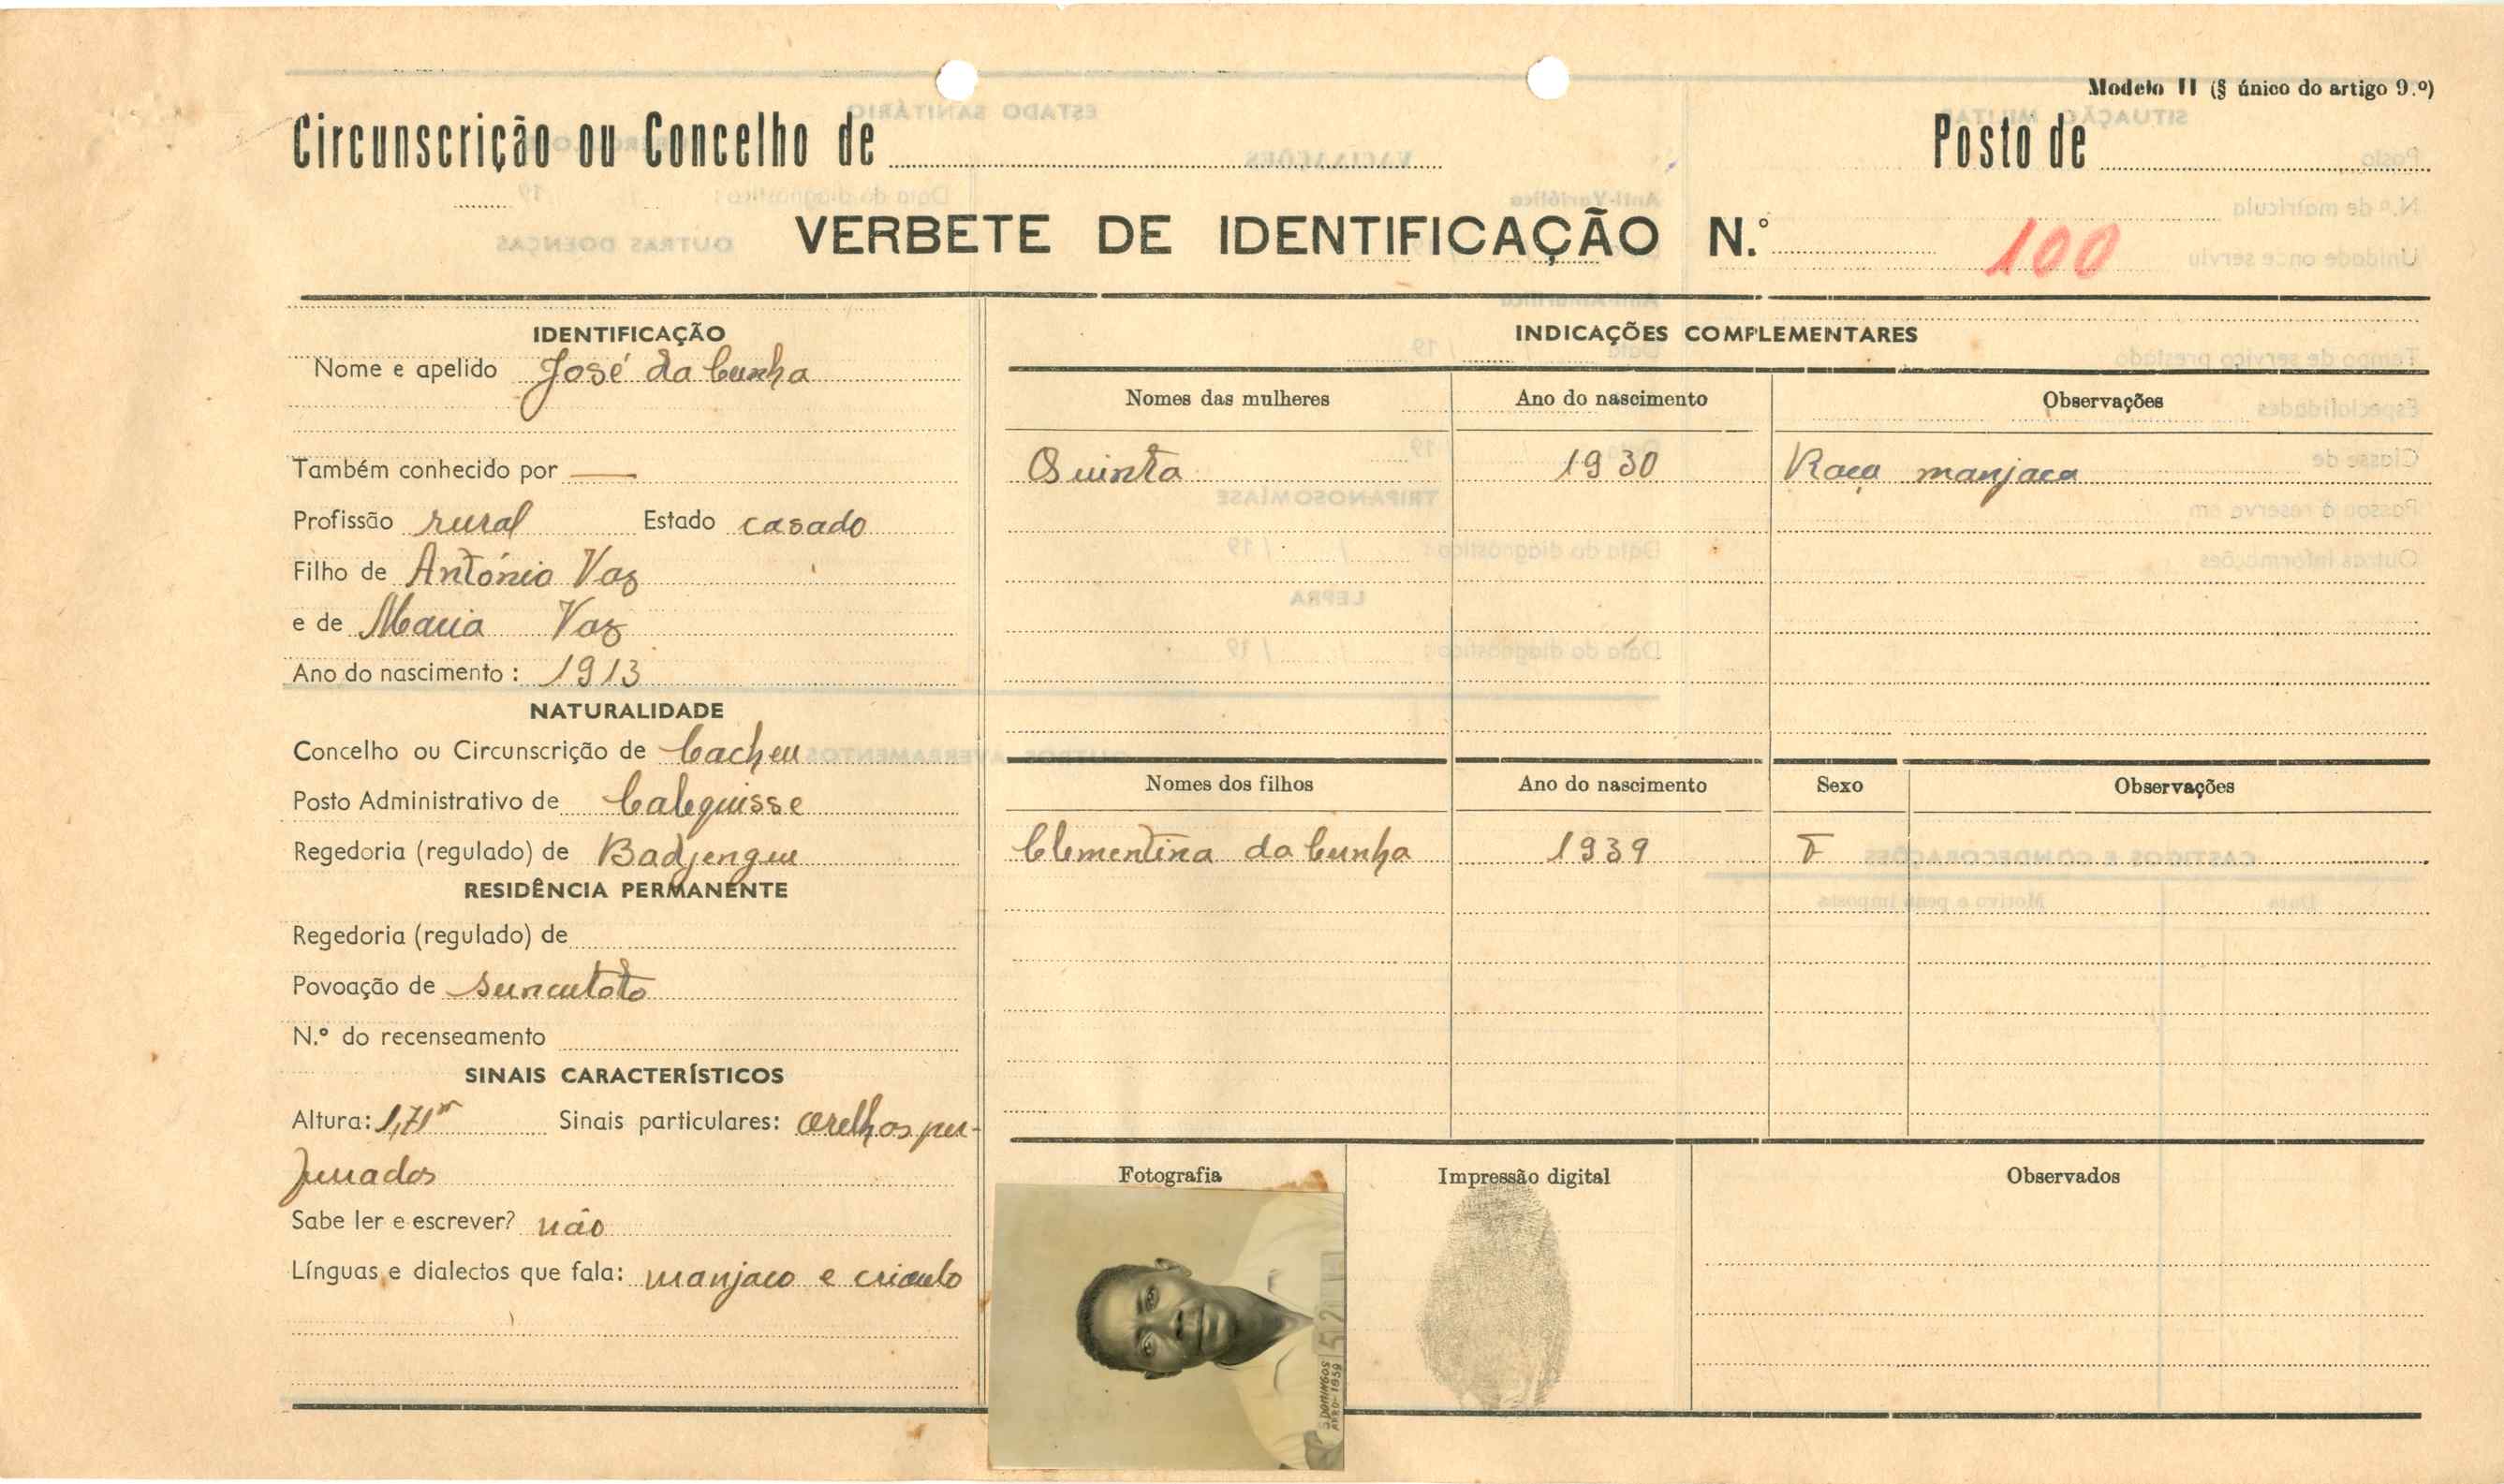 Modelo II (§ único do artigo 9.º)
Circunscrição ou Concelho de
Posto de
VERBETE DE IDENTIFICAÇÃO N.º 100
IDENTIFICAÇÃO
Nome e apelido José da Cunha
Também conhecido por —
Profissão rural Estado casado
Filho de António Vaz
e de Maria Vaz
Ano do nascimento : 1913
NATURALIDADE
Concelho ou Circunscrição de Cacheu
Posto Administrativo de Calequisse
Regedoria (regulado) de Badjengue
RESIDÊNCIA PERMANENTE
Regedoria (regulado) de
Povoação de Suncutoto
N.º do recenseamento
SINAIS CARACTERÍSTICOS
Altura: 1,71m Sinais particulares: orelhas per-
furados
Sabe ler e escrever? não
Línguas e dialectos que fala: manjaco e crioulo
INDICAÇÕES COMPLEMENTARES
Nomes das mulheres Ano do nascimento Observações
Quinta 1930 Raça manjaca
Nomes dos filhos Ano do nascimento Sexo Observações
Clementina da Cunha 1939 F
Fotografia Impressão digital Observados
S DOMINGOS
1959